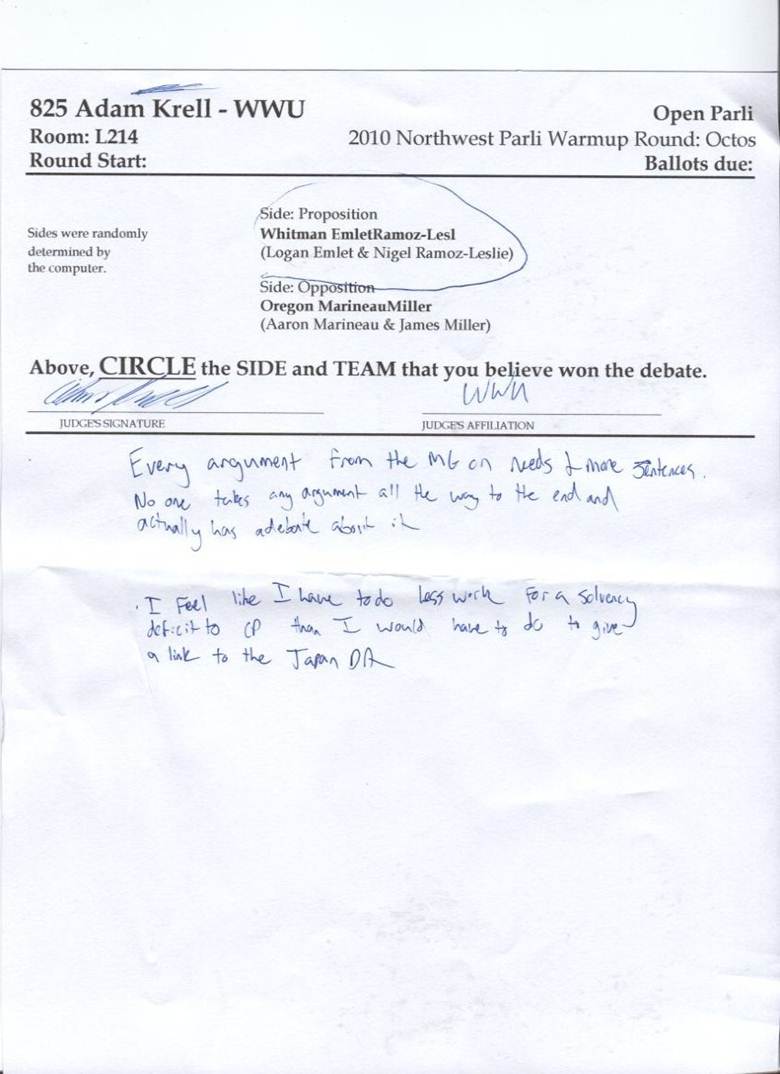 825 Adam Krell - WWU
Open Parli
Room: L214
2010 Northwest Parli Warmup Round: Octos
Round Start:
Ballots due:
Sides were randomly
determined by
the computer.
Side: Proposition
Whitman EmletRamoz-Lesl
(Logan Emlet & Nigel Ramoz-Leslie)
Side: Opposition
Oregon MarineauMiller
(Aaron Marineau & James Miller)
Above, CIRCLE the SIDE and TEAM that you believe won the debate.
WWU
JUDGE'S SIGNATURE
JUDGE'S AFFILIATION
Every argument from the MG on needs 2 more sentences.
No one takes any argument all the way to the end and
actually has a debate about it
· I feel like I have to do less work for a solvency
deficit to CP than I would have to do to give
a link to the Japan DA